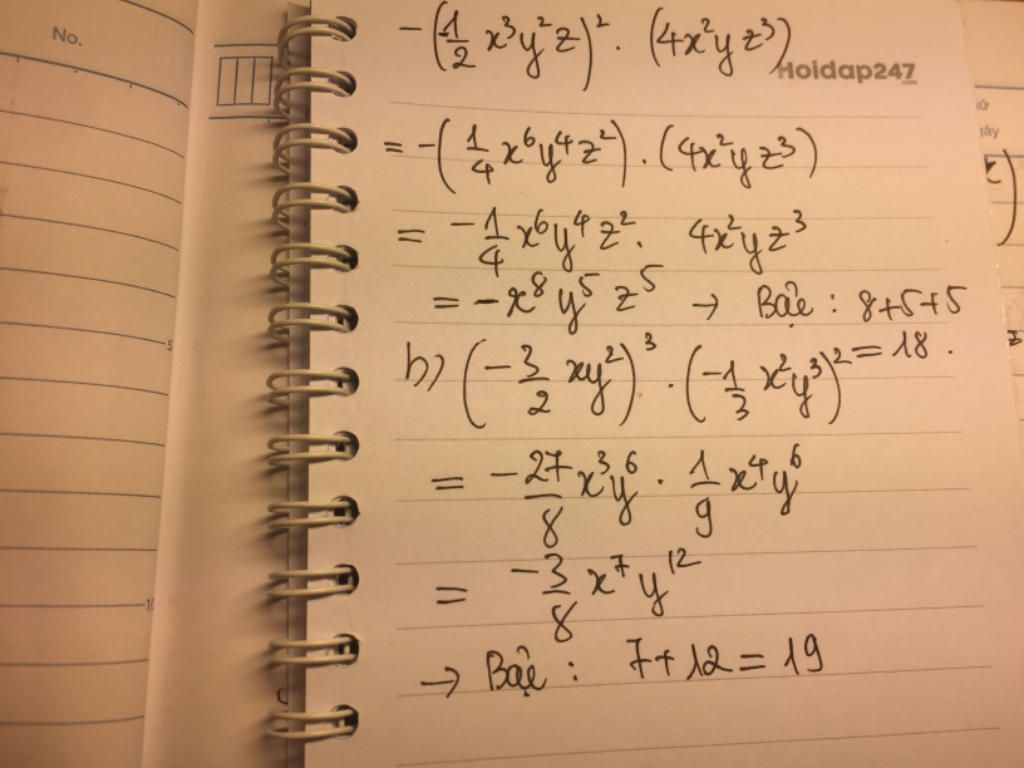 No.
-(1/2 x³y²z)². (4x²yz³)
Hoidap247
.com
= -(1/4 x⁶y⁴z²) . (4x²yz³)
= -1/4 x⁶y⁴z². 4x²yz³
= -x⁸y⁵z⁵ → Bậc : 8+5+5
= 18 .
b) (-3/2 xy²)³ . (-1/3 x²y³)²
= -27/8 x³y⁶ . 1/9 x⁴y⁶
= -3/8 x⁷y¹²
→ Bậc : 7+12=19